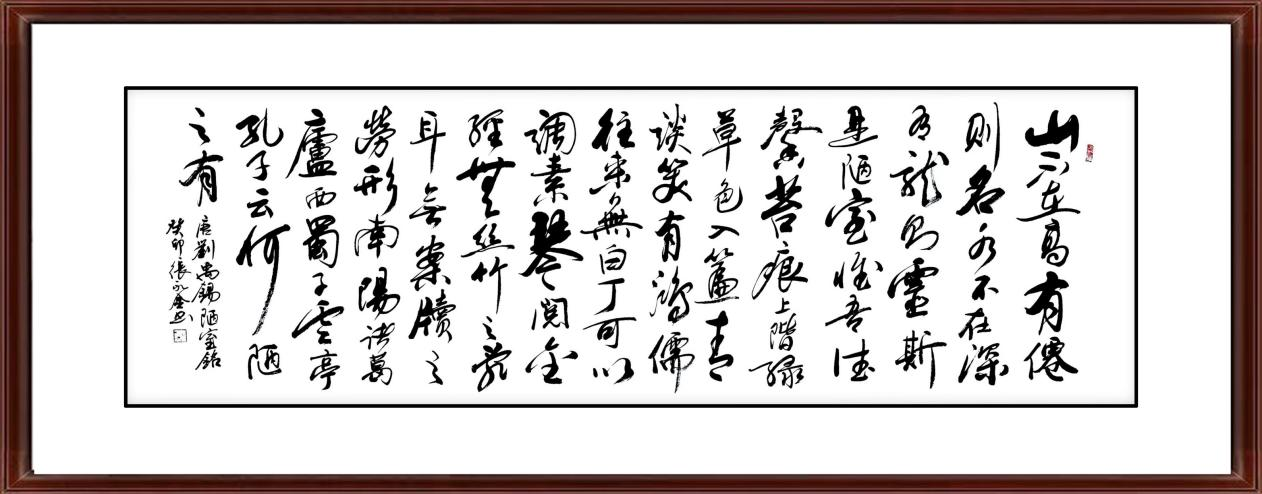 山不在高有僊
则名水不在深
有龍则靈斯
是陋室惟吾德
馨苔痕上階绿
草色入簾青
谈笑有鸿儒
往来無白丁可以
调素琴阅金
經無丝竹之亂
耳无案牘之
勞形南陽诸葛
廬西蜀子雲亭
孔子云何陋
之有
唐劉禹錫陋室铭
癸卯張永